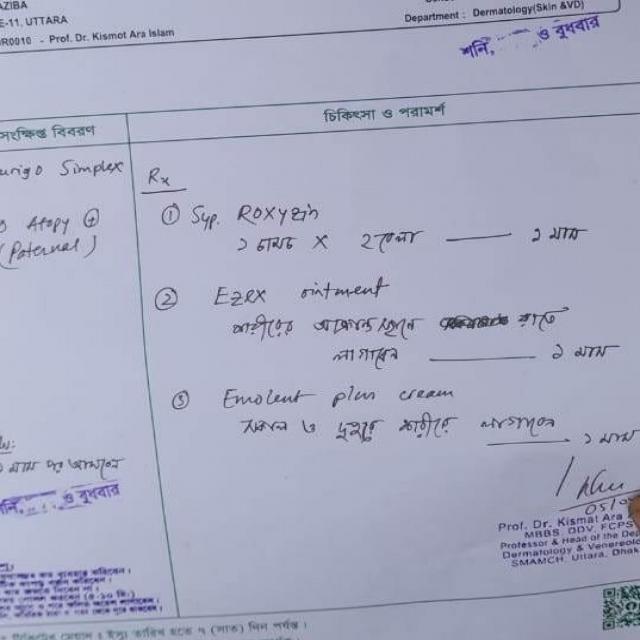 AZIBA
E-11, UTTARA
R0010 - Prof. Dr. Kismot Ara Islam
Department : Dermatology(Skin &VD)
শনি, ও বুধবার
সংক্ষিপ্ত বিবরণ
চিকিৎসা ও পরামর্শ
urigo Simplex
Atopy (+)
(Paternal)
Rx
① Syp. Roxyzin
১ চামচ X ২ বেলা —— ১ মাস
② Ezex ointment
শরীরের আক্রান্ত স্থানে রাতে
লাগাবেন —— ১ মাস
③ Emolent plus cream
সকাল ও দুপুরে শরীরে লাগাবেন —— ১ মাস
১ মাস পর আসবেন
শনি, ও বুধবার
05/
Prof. Dr. Kismat Ara
MBBS, DDV, FCPS
Professor & Head of the Dep
Dermatology & Venereolo
SMAMCH, Uttara, Dhak
৭ (সাত) দিন পর্যন্ত ।